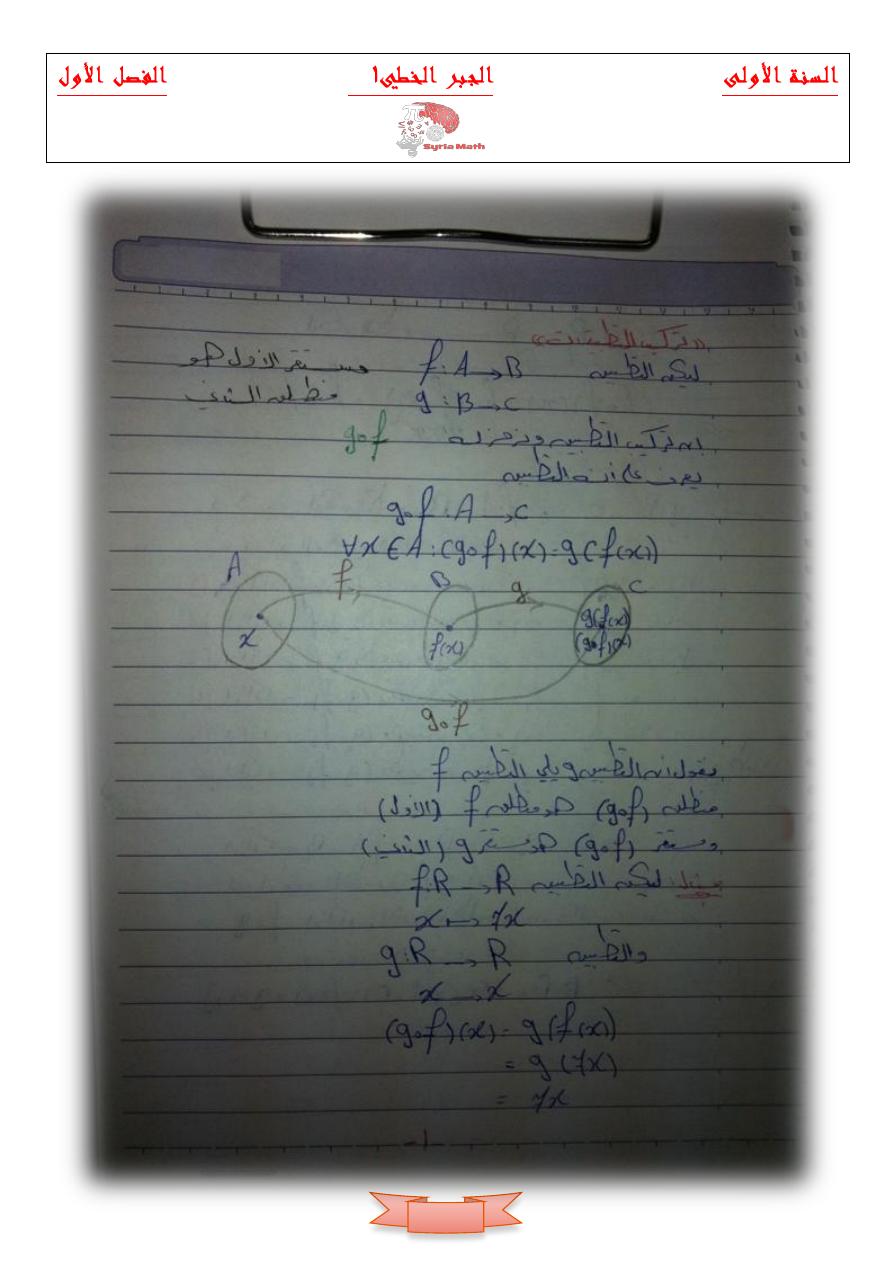 السنة الأولى الجبر الخطي١ الفصل الأول
Syria Math
((تركيب التطبيقات))
ليكن التطبيق f : A → B مستقر الأول هو
g : B → C منطلق الثاني
إن تركيب التطبيق ونرمز له gof
يعرف على أنه التطبيق
gof : A → C
∀x ∈ A : (gof)(x) = g(f(x))
A f B g C
x f(x) g(f(x))
(gof)(x)
gof
نقول إن التطبيق g يلي التطبيق f
منطلق (gof) هو منطلق f (الأول)
ومستقر (gof) هو مستقر g (الثاني)
مثال: ليكن التطبيق f : R → R
x ↦ 7x
والتطبيق g : R → R
x → x
(gof)(x) = g(f(x))
= g(7x)
= 7x
-1-